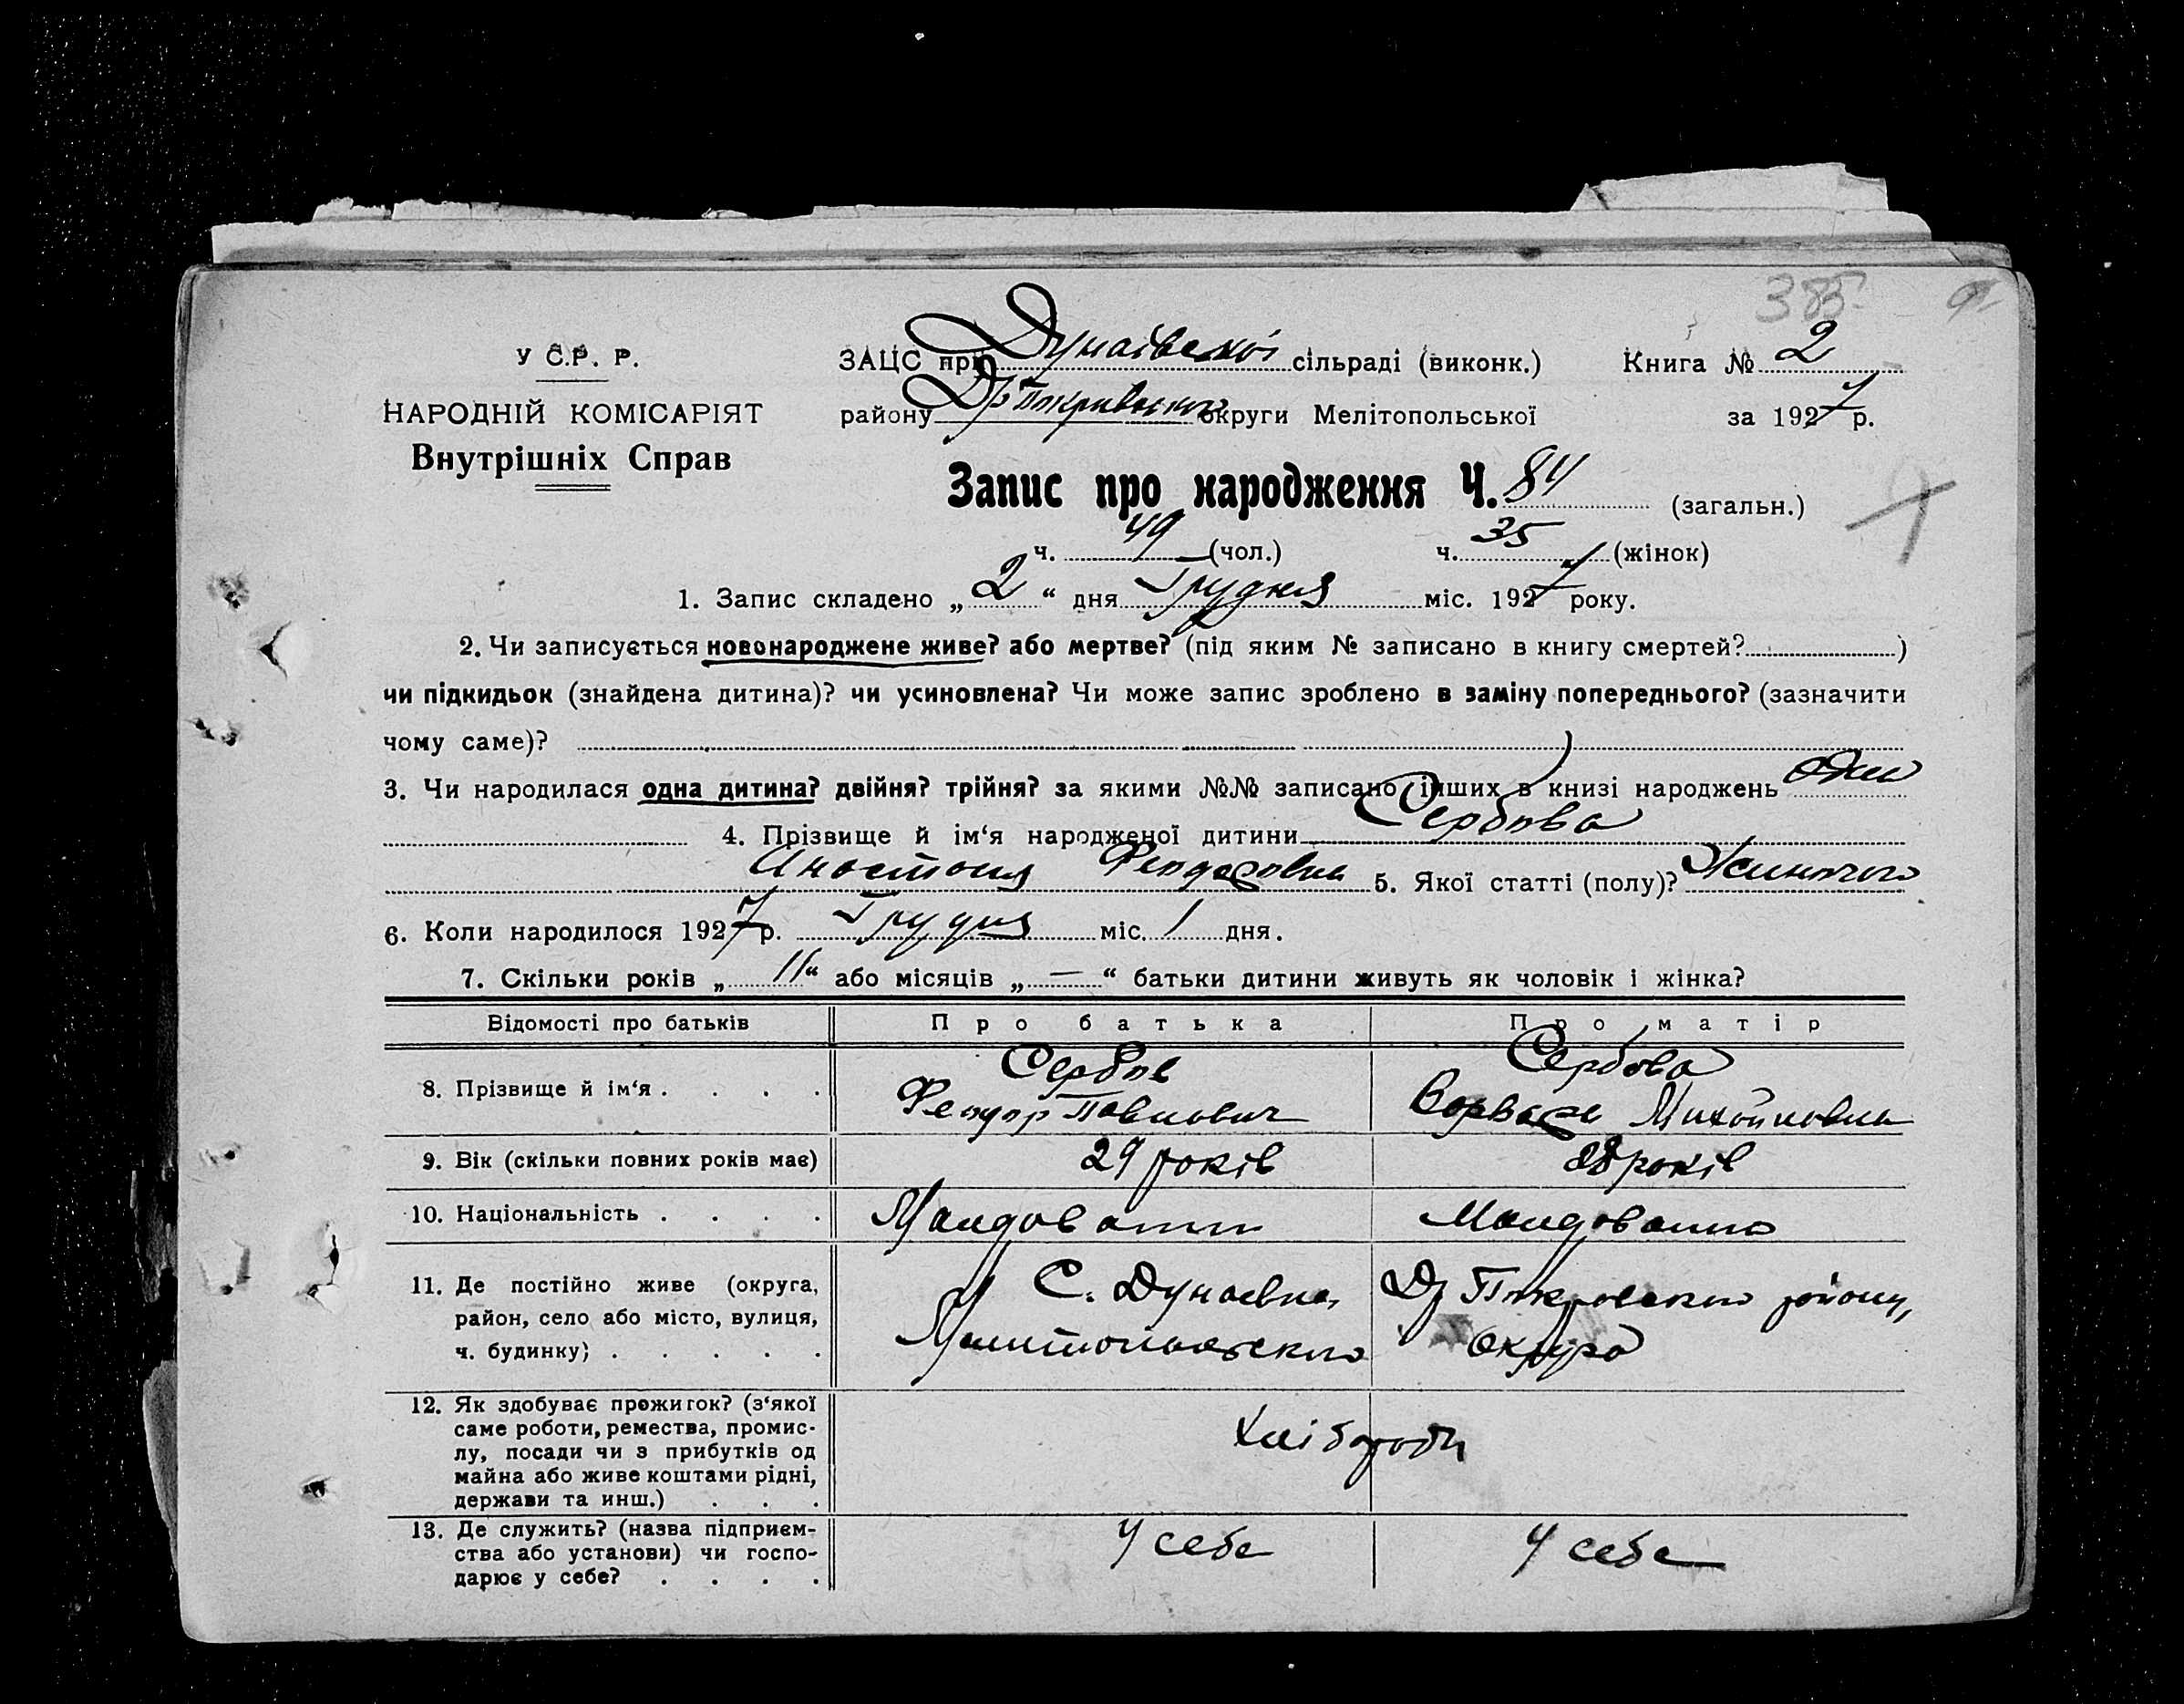 385
У С.Р. Р.
ЗАЦС при Дунаівской сільраді (виконк.) Книга № 2
НАРОДНІЙ КОМІСАРІЯТ
району округи Мелітопольської за 1927 р.
Внутрішніх Справ
Запис про народження Ч. 84 (загальн.)
ч. 49 (чол.) ч. 35 (жінок)
1. Запис складено „ 2 “ дня Грудня міс. 1927 року.
2. Чи записується новонароджене живе? або мертве? (під яким № записано в книгу смертей? )
чи підкидьок (знайдена дитина)? чи усиновлена? Чи може запис зроблено в заміну попереднього? (зазначити
чому саме)?
3. Чи народилася одна дитина? двійня? трійня? за якими №№ записано інших в книзі народжень
4. Прізвище й ім‘я народженої дитини Сербова
Анастасия Феодоровна 5. Якої статті (полу)? Жиночого
6. Коли народилося 1927 р. Грудня міс. 1 дня.
7. Скільки років „ 11 “ або місяців „ — “ батьки дитини живуть як чоловік і жінка?
Відомості про батьків Про батька Про матір
8. Прізвище й ім‘я . . . . Сербов Сербова
Феодор Павлович Варвара Михайловна
9. Вік (скільки повних років має) 29 років 28 років
10. Національність . . . . Молдованин Молдованка
11. Де постійно живе (округа, С. Дунаевка, Др Покровского району,
район, село або місто, вулиця,
ч. будинку) . . . . . округа
12. Як здобуває прожиток? (з‘якої
саме роботи, ремества, промис-
лу, посади чи з прибутків од Хлібороби
майна або живе коштами рідні,
держави та инш.) . . .
13. Де служить? (назва підприєм- У себе У себе
ства або установи) чи госпо-
дарює у себе? . . . .